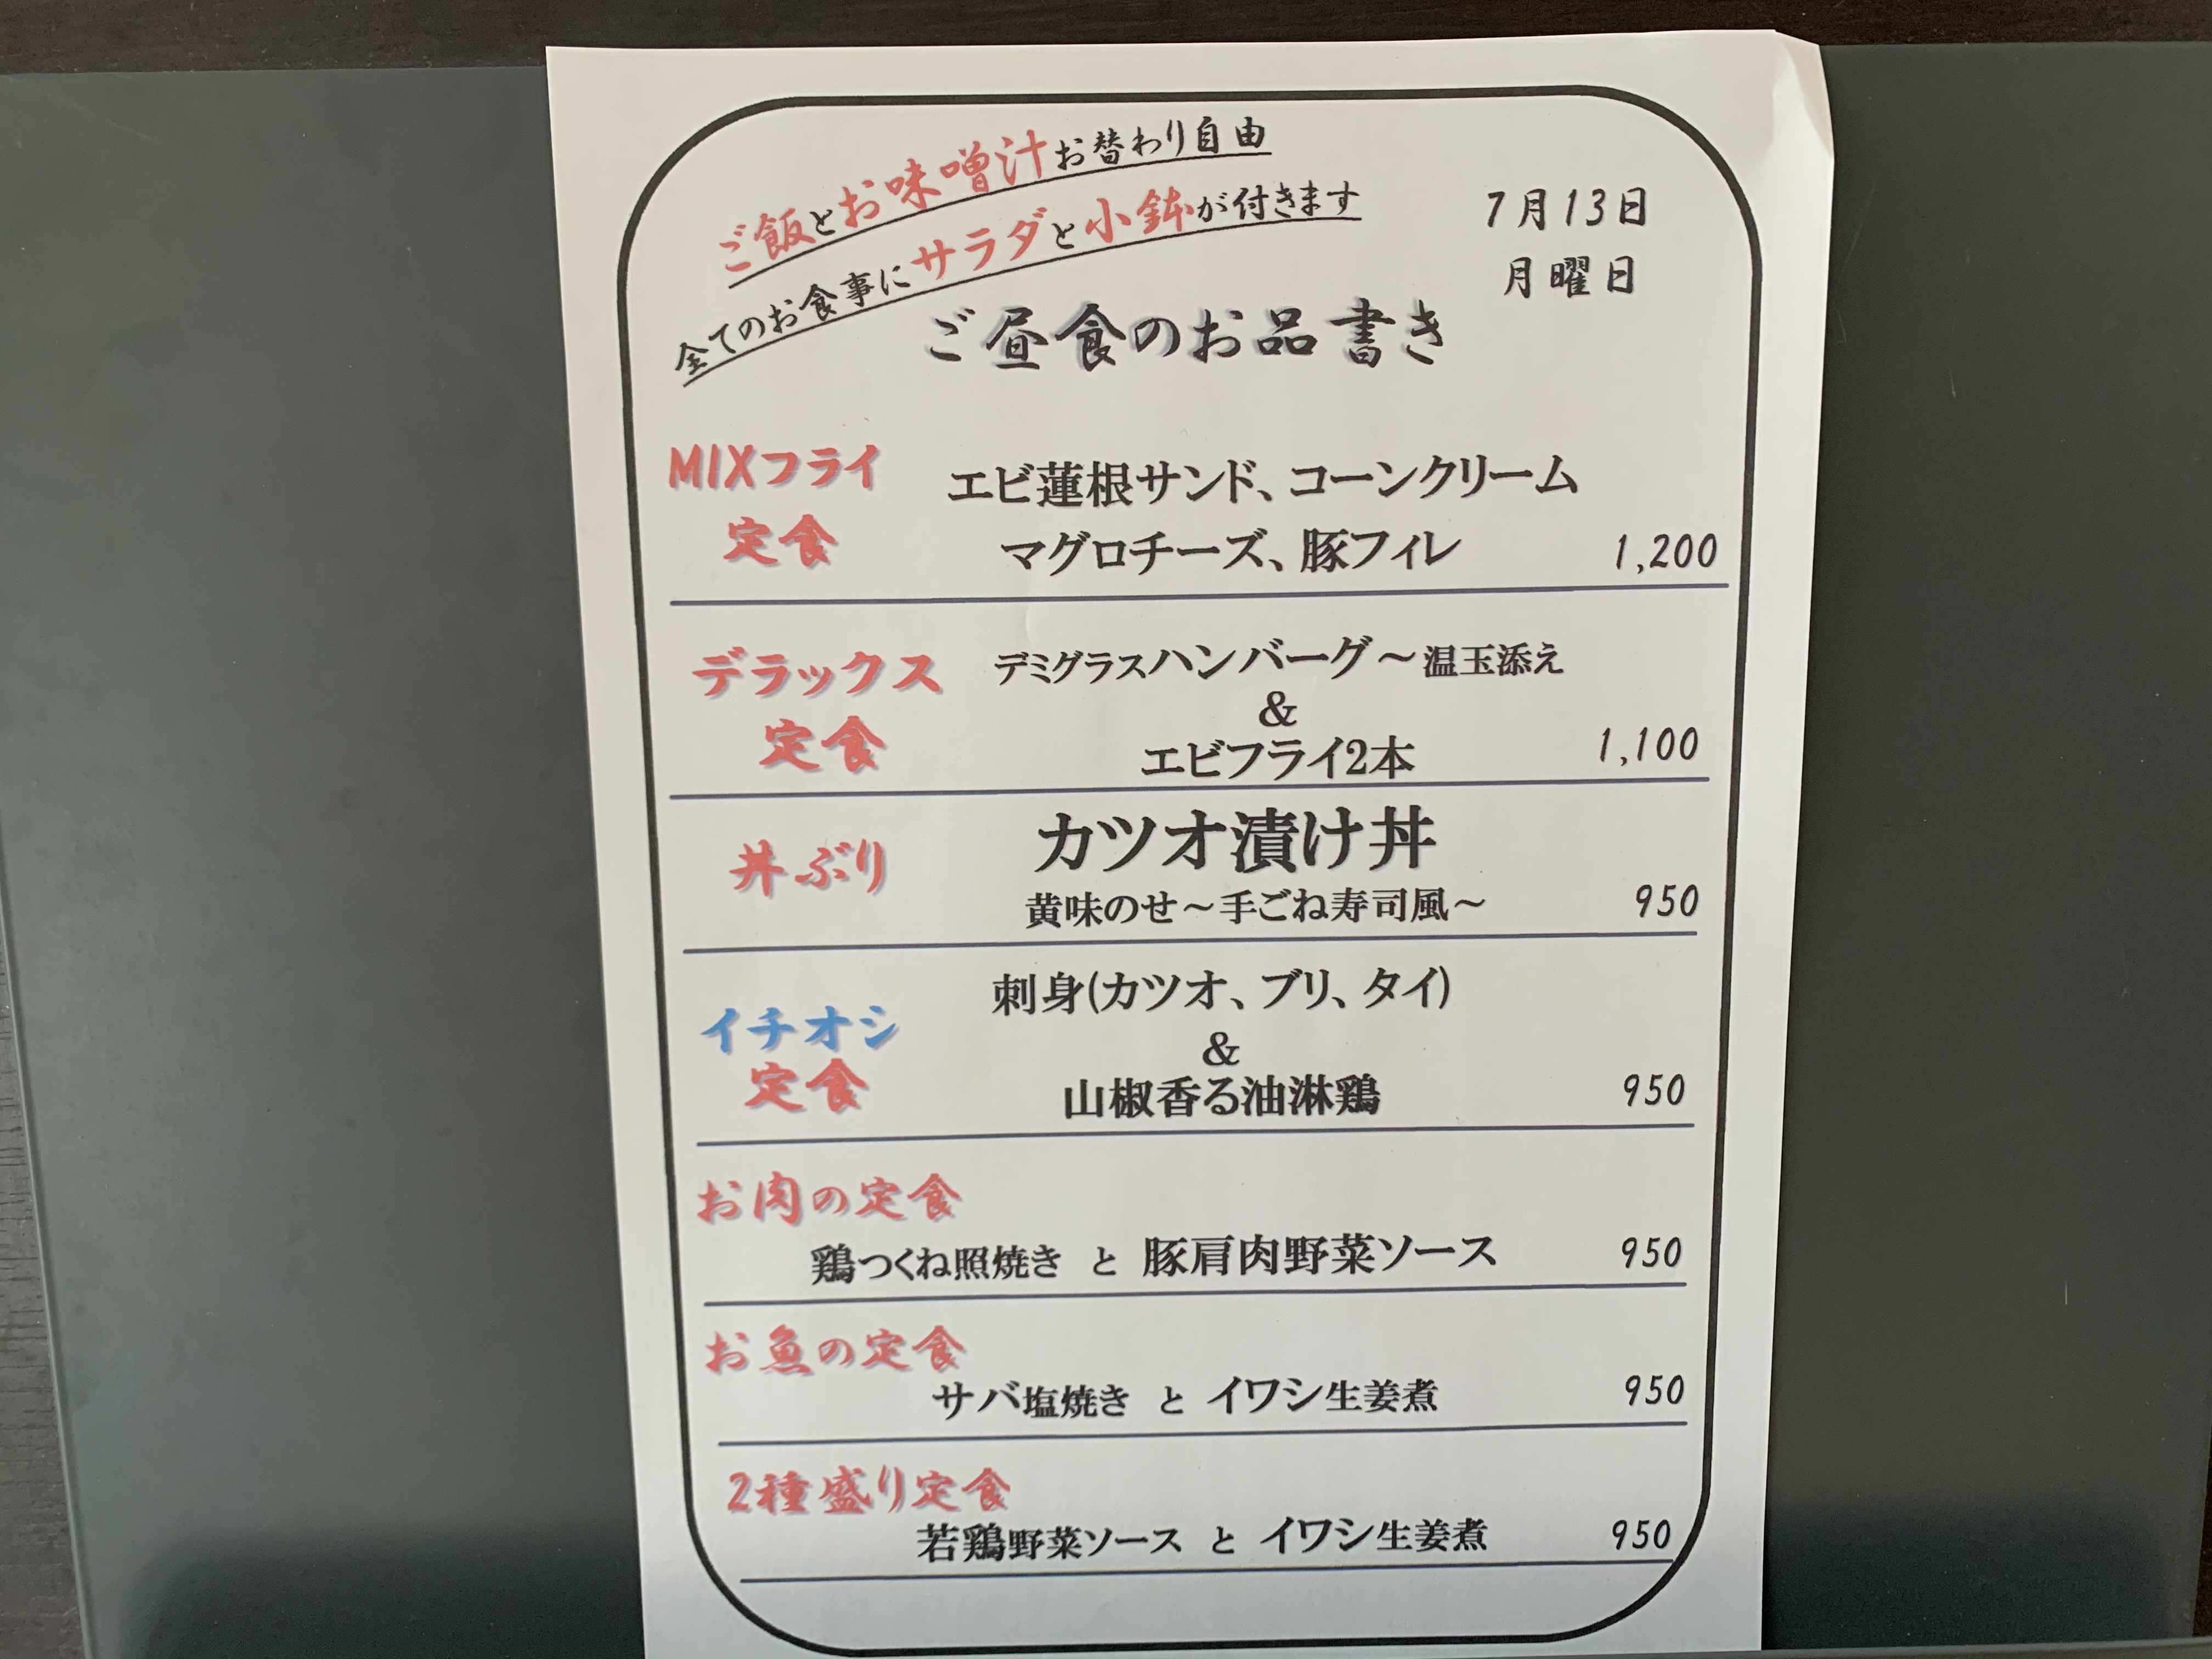 ご飯とお味噌汁お替わり自由
全てのお食事にサラダと小鉢が付きます
7月13日
月曜日
ご昼食のお品書き
MIXフライ
定食
エビ蓮根サンド、コーンクリーム
マグロチーズ、豚フィレ
1,200
デラックス
定食
デミグラスハンバーグ～温玉添え
&
エビフライ2本
1,100
丼ぶり
カツオ漬け丼
黄味のせ～手ごね寿司風～
950
イチオシ
定食
刺身(カツオ、ブリ、タイ)
&
山椒香る油淋鶏
950
お肉の定食
鶏つくね照焼き と 豚肩肉野菜ソース 950
お魚の定食
サバ塩焼き と イワシ生姜煮 950
2種盛り定食
若鶏野菜ソース と イワシ生姜煮 950